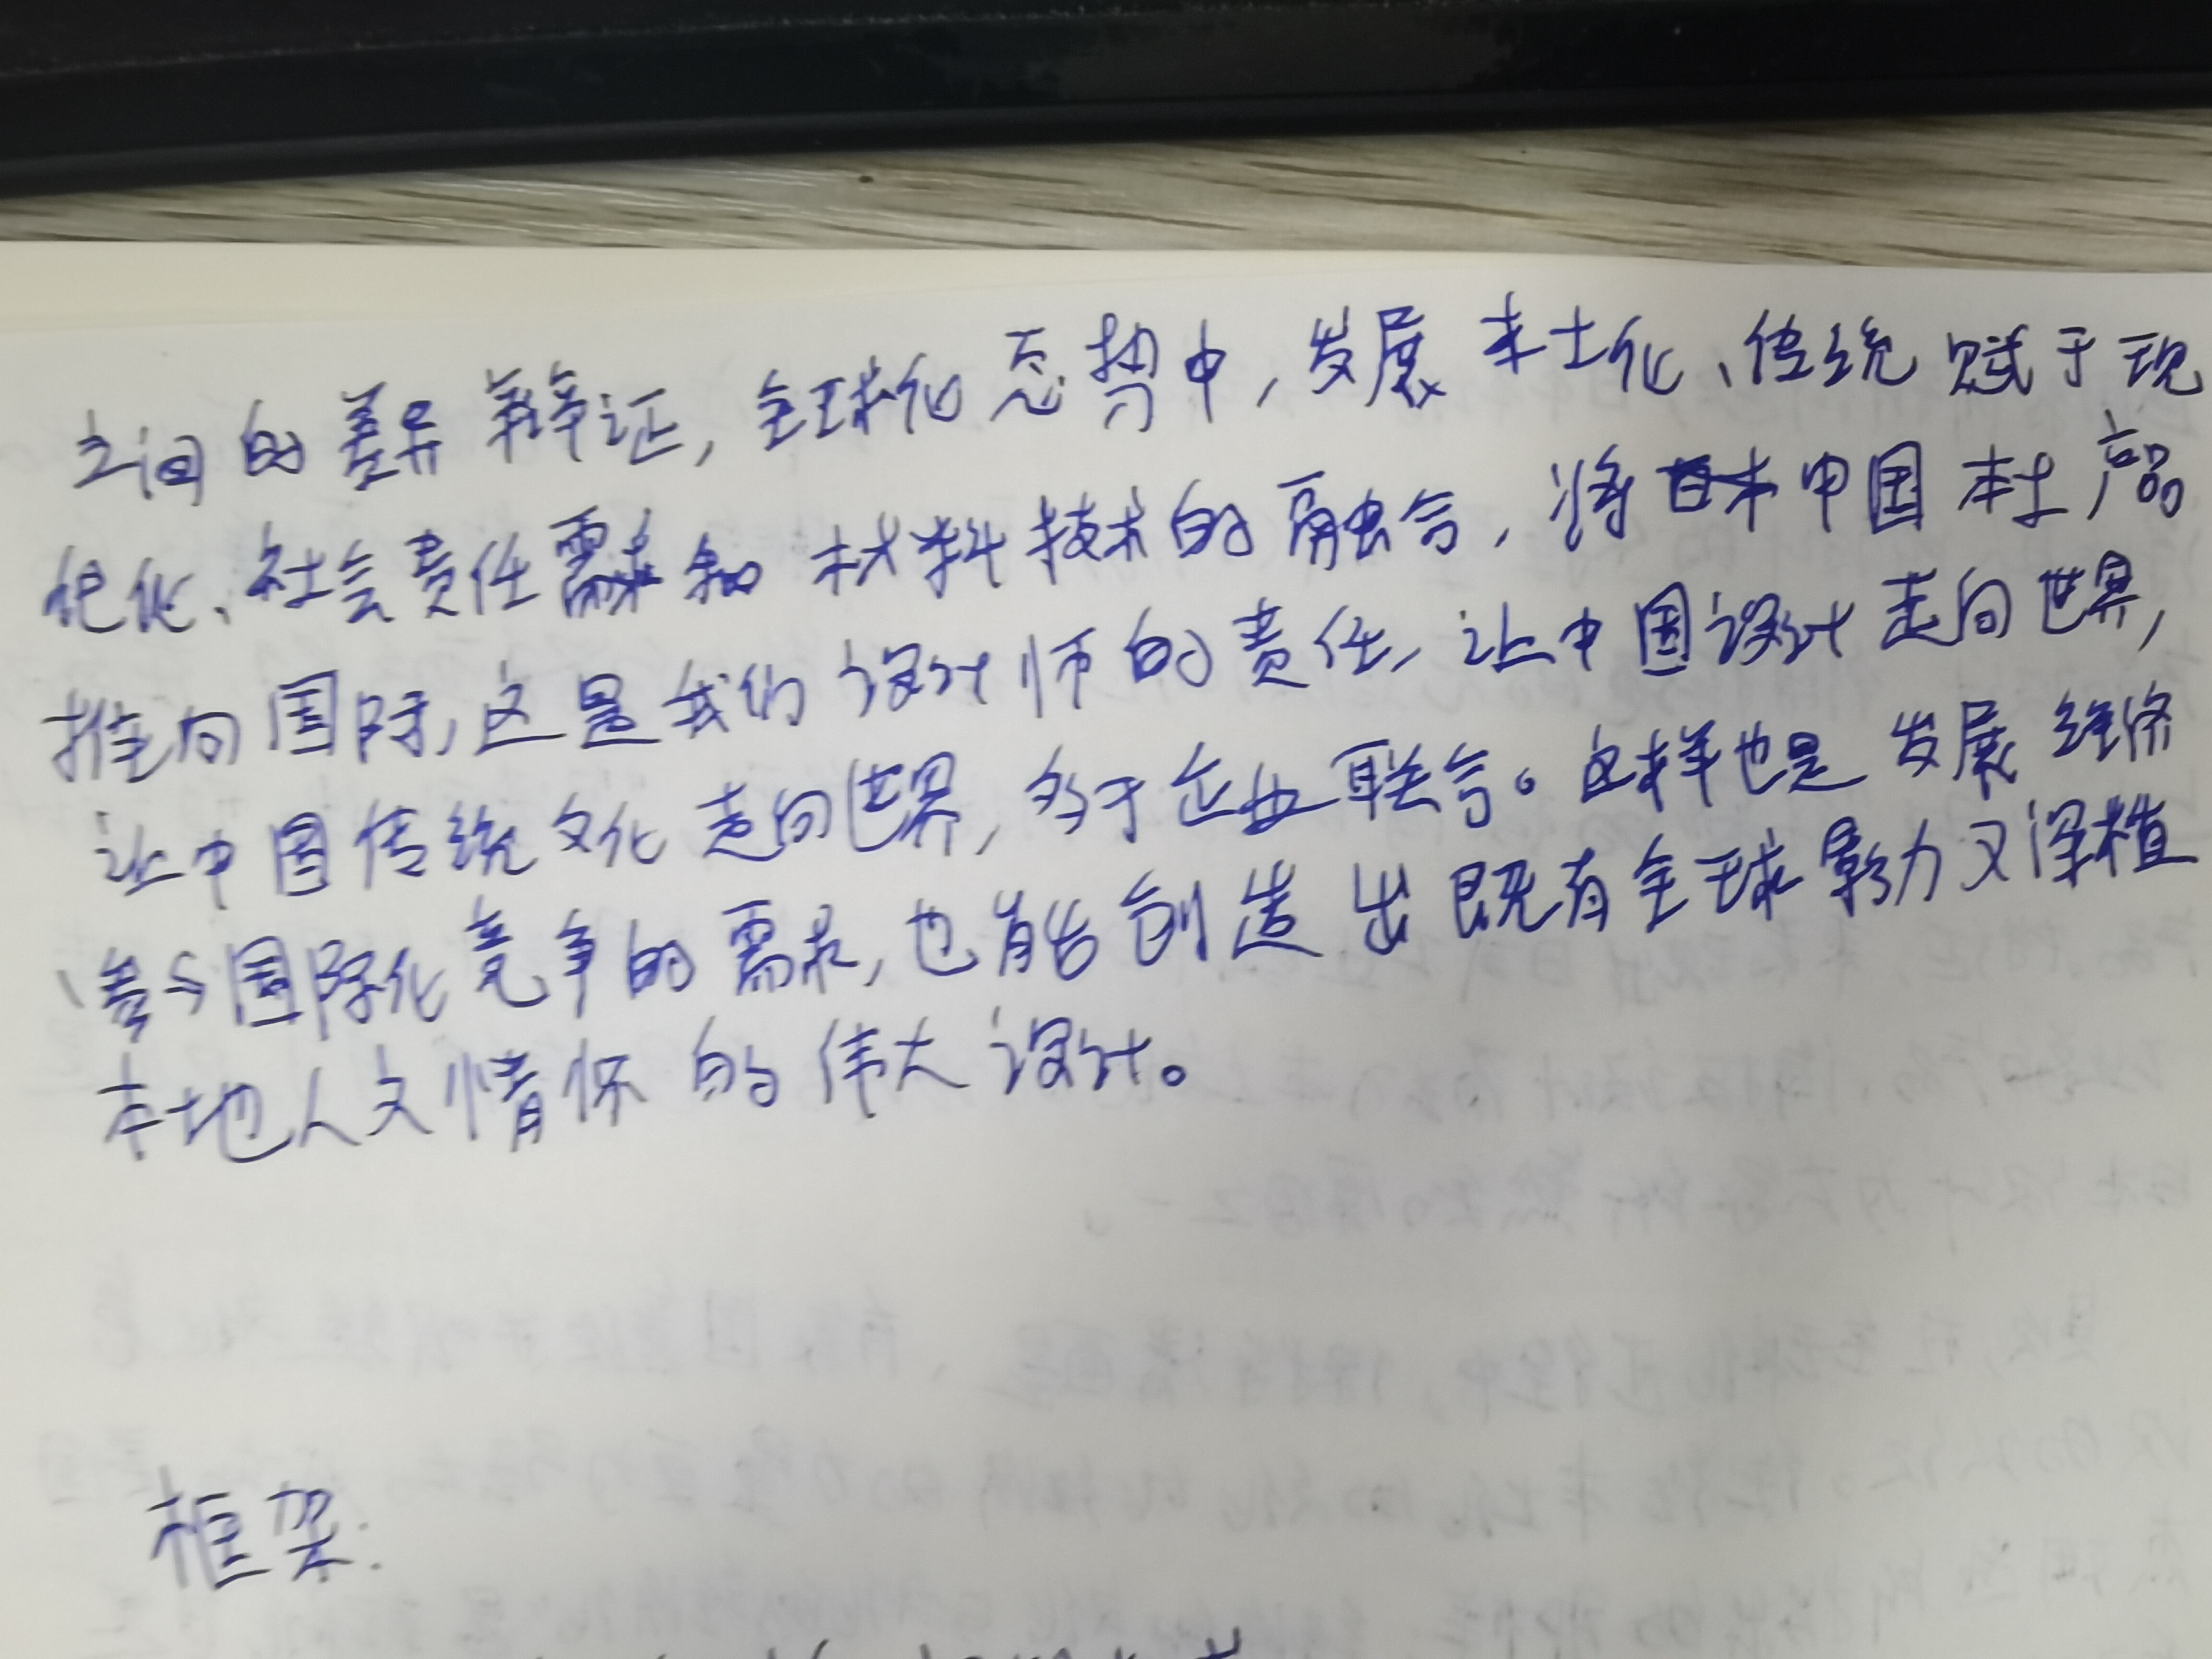 之间的差异辩证,全球化态势中,发展本土化、传统赋于现
代化、社会责任需求和材料技术的融合,将中国本土产品
推向国际,这是我们设计师的责任,让中国设计走向世界,
让中国传统文化走向世界,多于企业联合。这样也是发展经济
、参与国际化竞争的需求,也能创造出既有全球影力又深植
本地人文情怀的伟大设计。
框架: